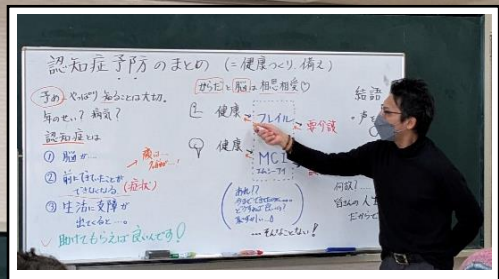 認知症予防のまとめ (=健康つくり、備え)
予め やっぱり知ることは大切。
年のせい? 病気?
認知症とは
① 脳が…
② 前にできたことが
できなくなる (症状)
③ 生活に支障が
出てくると…。
✓ 助けてもらえば良いんです!
からだと脳は相思相愛♡
健康
フレイル
要介護
健康
MCI
エムシーアイ
あれ!?
…そんなことない!
結語
何故!
皆さんの人生
だからで